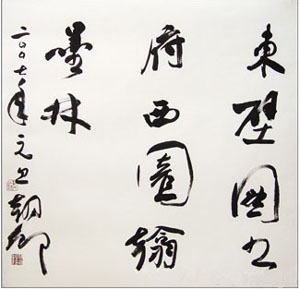 東壁圖书
府西園翰
墨林
二〇〇七年元旦